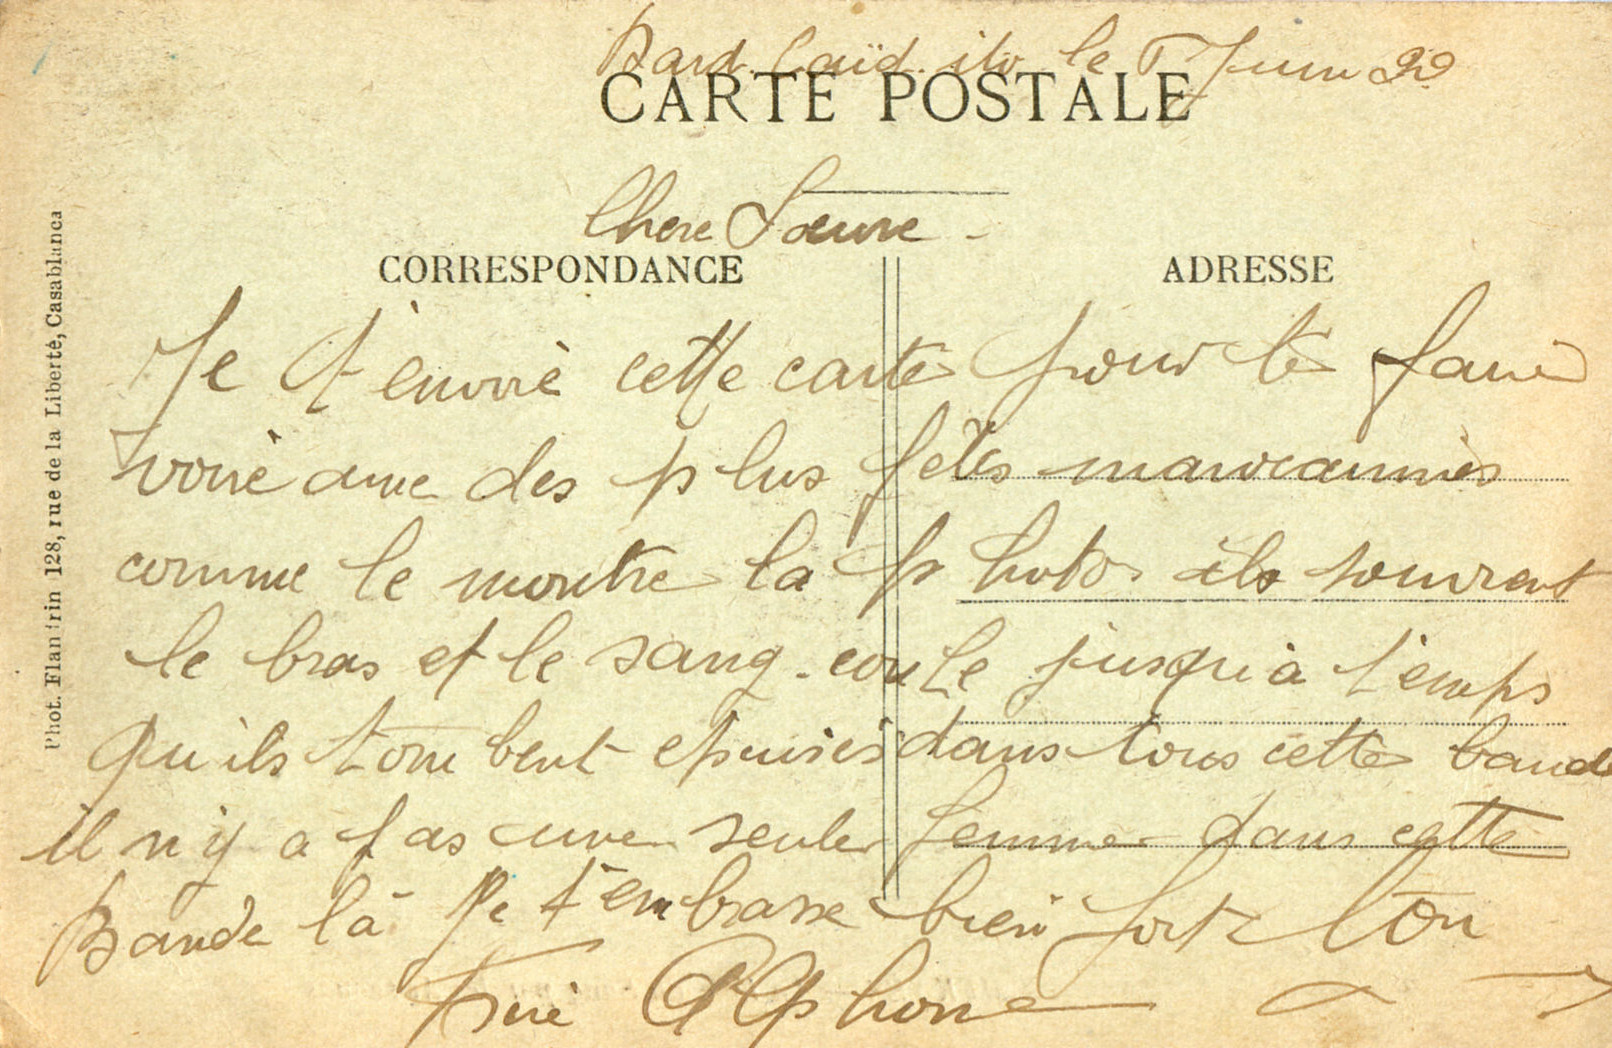 Bard. Caïd. ito le 5 Juin 22
CARTE POSTALE
Chere Soeure -
CORRESPONDANCE
ADRESSE
Je t'envoie cette carte pour te faire
voire une des plus fetes marocainnes
comme le montre la photo ils souvrent
le bras et le sang. coule jusqu'a temps
qu'ils tombent epuisés dans tous cette bande
il n'y a pas une seule femme dans cette
Bande là Je t'embrasse bien fort Ton
Frere Alphonse
Phot. Flandrin 128, rue de la Liberté, Casablanca